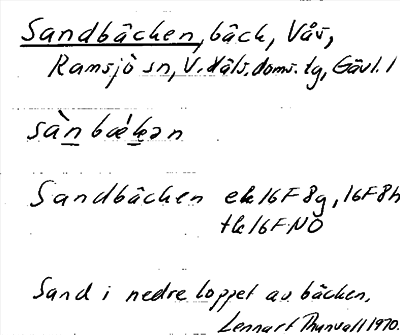 Sandbäcken, bäck, Vås,
Ramsjö sn, V. Häls. doms. tg, Gävl. l
sàn bǽkən
Sandbäcken ek 16F 8g, 16F 8h
tk 16F NO
Sand i nedre loppet av bäcken.
Lennart Thunvall 1970.